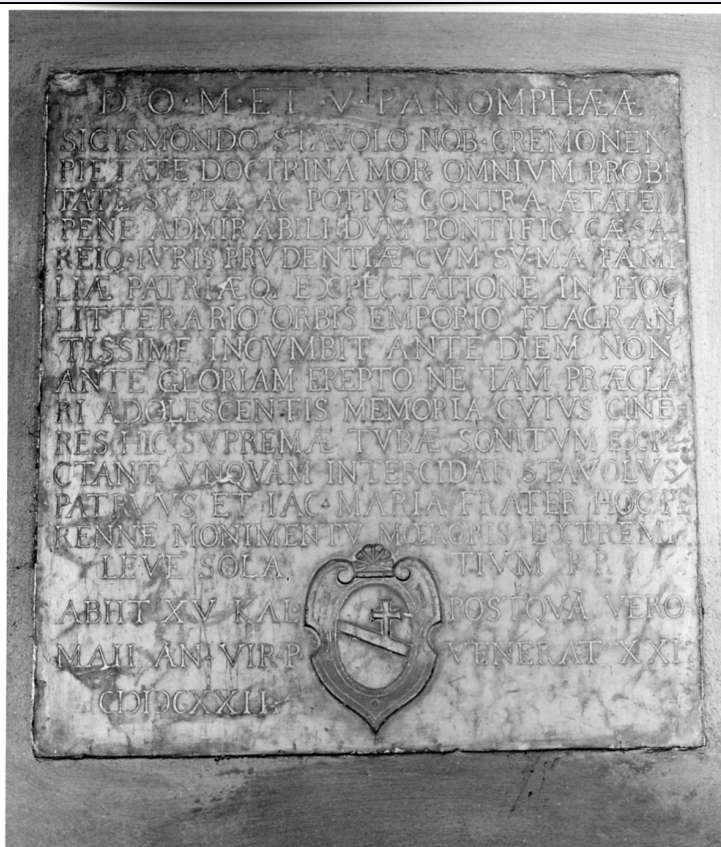 D·O·M·ET·V·PANOMPHÆÆ
SIGISMONDO STAVOLO NOB·CREMONEN
PIETATE DOCTRINA MOR· OMNIVM PROBI
TATE SVPRA AC POTIVS CONTRA ÆTATEM
PENE ADMIRABILI DVM PONTIFIC·CÆSA
REIQ·IVRIS PRVDENTIÆ CVM SVMA FAMI
LIÆ PATRIÆQ. EXPECTATIONE IN HOC
LITTERARIO ORBIS EMPORIO FLAGRAN
TISSIME INCVMBIT ANTE DIEM NON
ANTE GLORIAM EREPTO NE TAM PRÆCLA
RI ADOLESCENTIS MEMORIA CVIVS CINE
RES HIC SVPREMÆ TVBÆ SONITVM EXPE
CTANT VNQVAM INTERCIDAT STAVOLVS
PATRVVS ET IAC·MARIA FRATER HOC PE
RENNE MONIMENTV MŒRORIS EXTREMI
LEVE SOLA TIVM P P
ABIIT XV KAL POSTQVÃ VERO
MAII AN· VIR·P VENERAT XXI
CIƆIƆCXXII